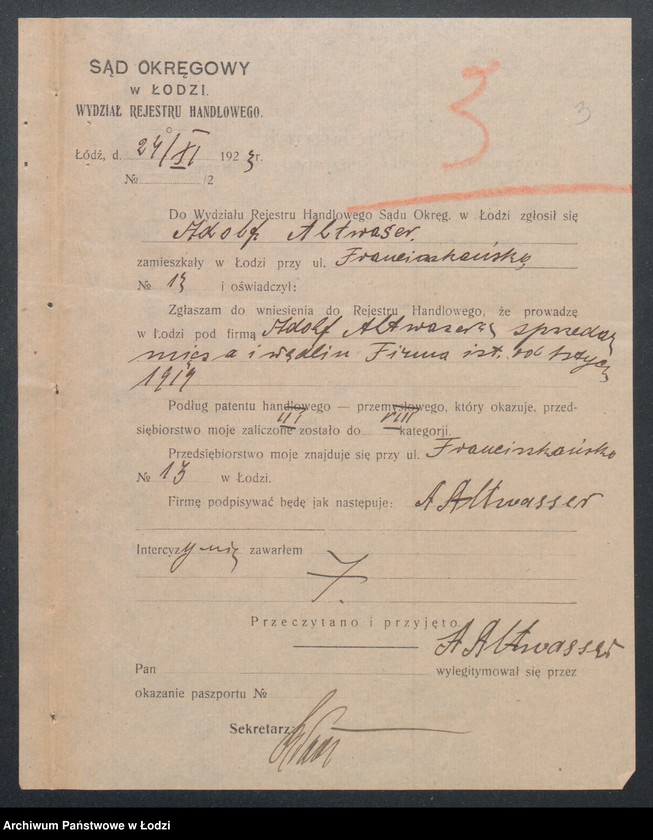 SĄD OKRĘGOWY
w ŁODZI.
WYDZIAŁ REJESTRU HANDLOWEGO.
3
3
Łódź, d. 24/XI 1923 r.
№ /2
Do Wydziału Rejestru Handlowego Sądu Okręg. w Łodzi zgłosił się
Adolf Altwaser.
zamieszkały w Łodzi przy ul. Franciszkańską
№ 13 i oświadczył:
Zgłaszam do wniesienia do Rejestru Handlowego, że prowadzę
w Łodzi pod firmą Adolf Altwaser sprzedaż
mięsa i wędlin Firma ist. od
1919
Podług patentu handlowego — przemysłowego, który okazuje, przed-
III VIII
siębiorstwo moje zaliczone zostało do kategorji.
Przedsiębiorstwo moje znajduje się przy ul. Franciszkańska
№ 13 w Łodzi.
Firmę podpisywać będę jak następuje: A Altwasser
Intercyzy nie zawarłem
Przeczytano i przyjęto.
A Altwasser
Pan wylegitymował się przez
okazanie paszportu №
Sekretarz
Archiwum Państwowe w Łodzi